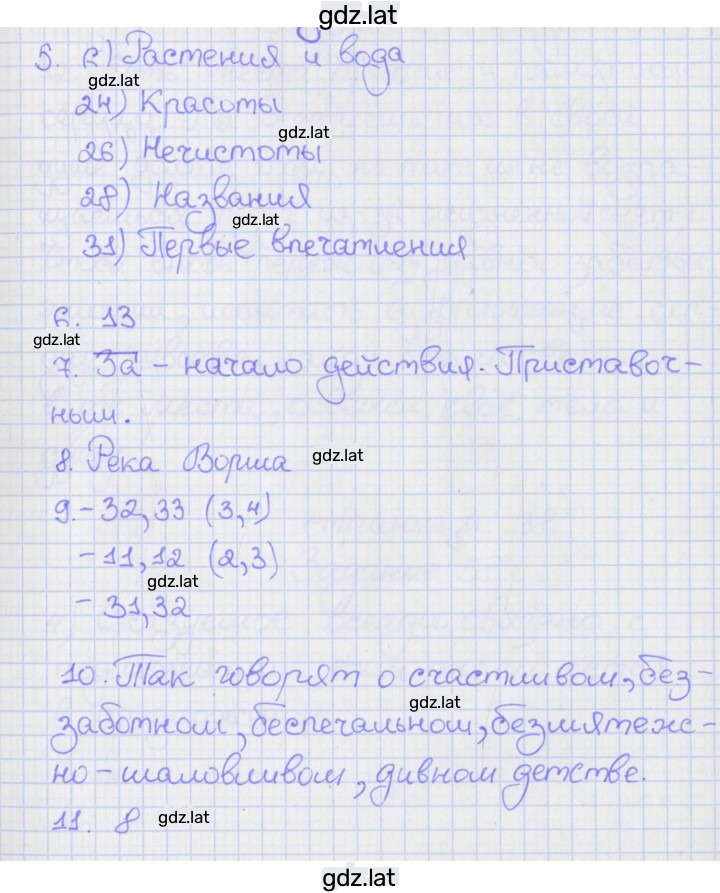 gdz.lat
5. 6) Растения и вода
gdz.lat
24) Красоты
gdz.lat
26) Нечистоты
28) Названия
gdz.lat
31) Первые впечатления
6. 13
gdz.lat
7. За - начало действия. Приставоч-
ным.
8. Река Ворша gdz.lat
9. - 32, 33 (3, 4)
- 11, 12 (2, 3)
gdz.lat
- 31, 32
10. Так говорят о счастливом, без-
gdz.lat
заботном, беспечальном, безмятеж-
но-шаловливом, дивном детстве.
11. 8 gdz.lat
gdz.lat